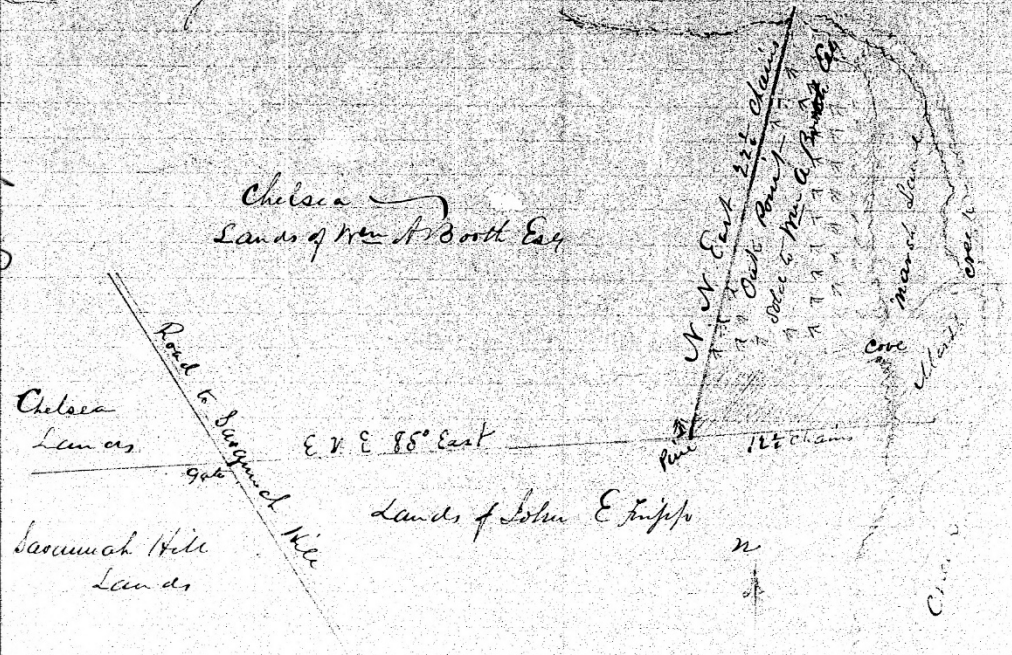 Chelsea
Lands of Wm A Booth Esq
N. N. East 22½ chains
Oak Point
Sold to Wm A Booth Esq
marsh Land
cove
Marsh
Road to
Chelsea
Lands
gate
85° East
Pine
12½ chains
Lands of John E Fripp
Savannah Hill
Lands
N